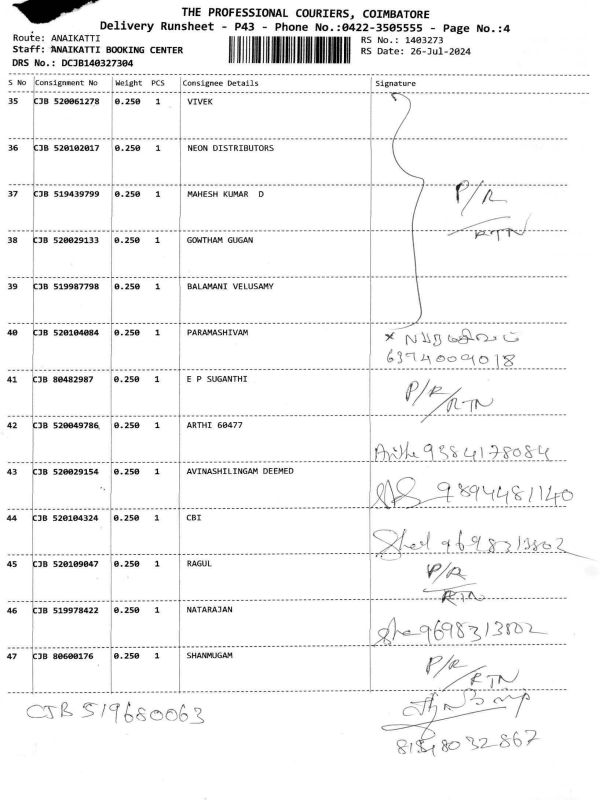 THE PROFESSIONAL COURIERS, COIMBATORE
Delivery Runsheet - P43 - Phone No.:0422-3505555 - Page No.:4
Route: ANAIKATTI
Staff: ANAIKATTI BOOKING CENTER
DRS No.: DCJB140327304
RS No.: 1403273
RS Date: 26-Jul-2024
S No Consignment No Weight PCS Consignee Details Signature
35 CJB 520061278 0.250 1 VIVEK
36 CJB 520102017 0.250 1 NEON DISTRIBUTORS
37 CJB 519439799 0.250 1 MAHESH KUMAR D P/R
RTN
38 CJB 520029133 0.250 1 GOWTHAM GUGAN
39 CJB 519987798 0.250 1 BALAMANI VELUSAMY
40 CJB 520104084 0.250 1 PARAMASHIVAM
6374009018
41 CJB 80482987 0.250 1 E P SUGANTHI P/R
RTN
42 CJB 520049786 0.250 1 ARTHI 60477
9384178084
43 CJB 520029154 0.250 1 AVINASHILINGAM DEEMED
9894481140
44 CJB 520104324 0.250 1 CBI
9698313802
45 CJB 520109047 0.250 1 RAGUL P/R
RTN
46 CJB 519978422 0.250 1 NATARAJAN
9698313802
47 CJB 80600176 0.250 1 SHANMUGAM P/R
RTN
CJB 519680063